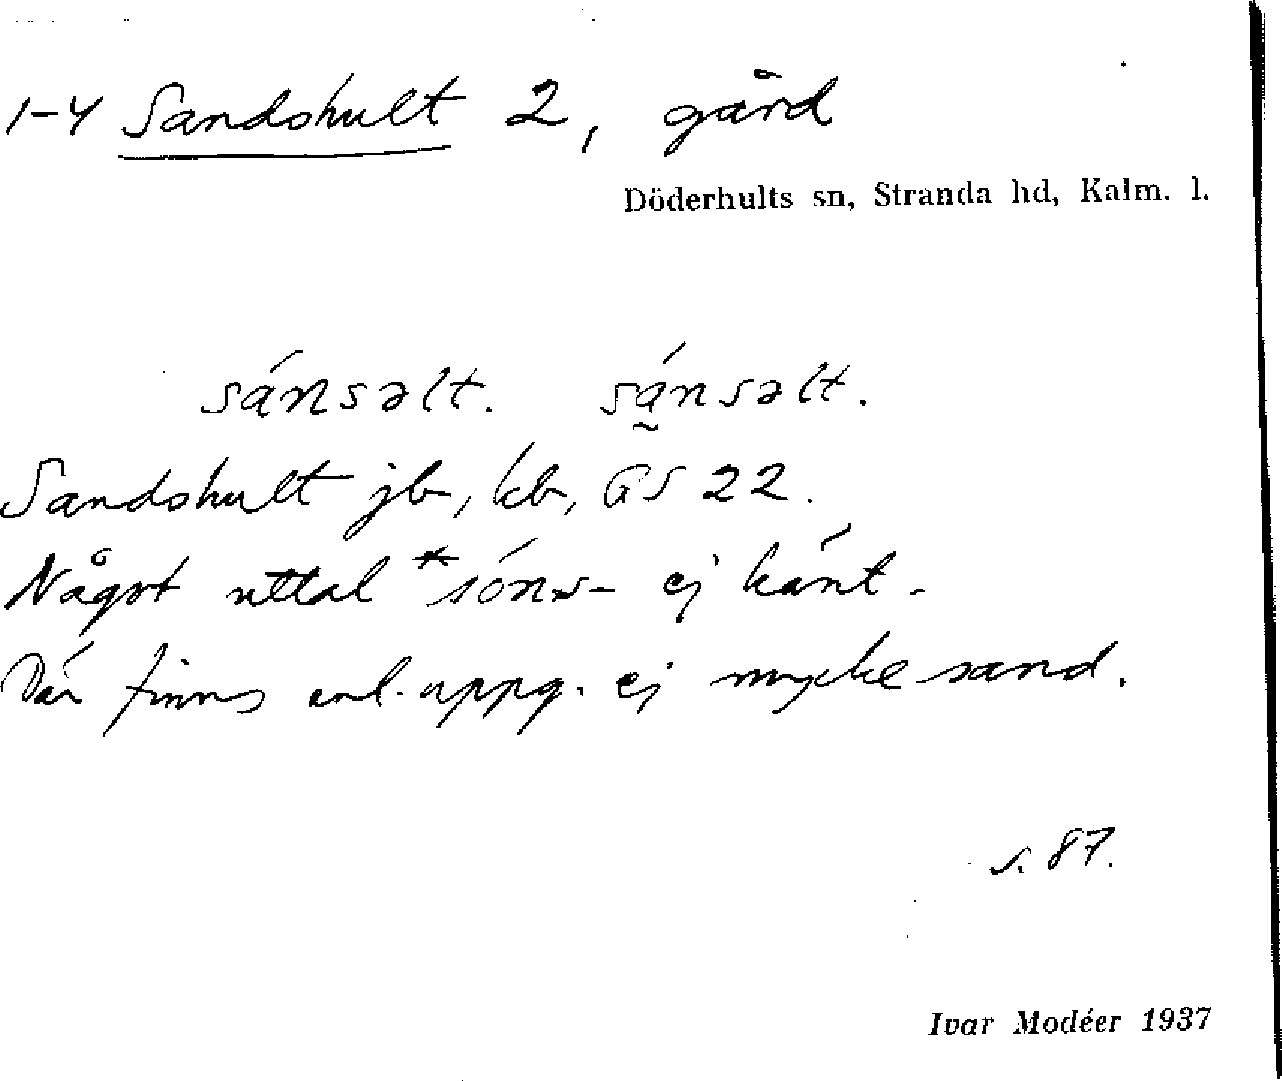 1-4 Sandshult 2, gård
Döderhults sn, Stranda hd, Kalm. l.
sánsəlt. sá̰nsəlt.
Sandshult jb, kb, GS 22.
Något uttal *sóns- ej känt.
Där finns enl. uppg. ej mycke sand.
s. 87.
Ivar Modéer 1937